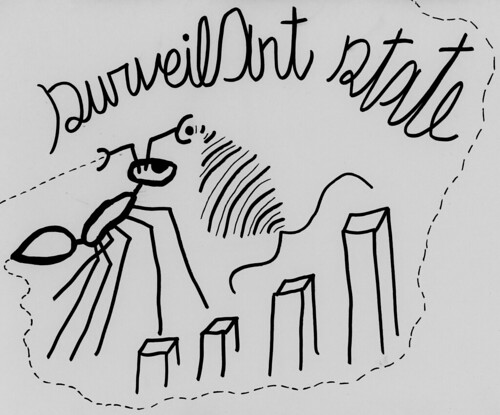 surveilAnt state